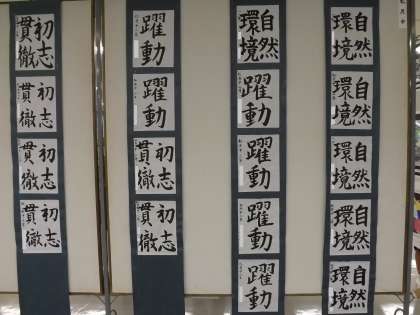 自然
環境
自然
環境
自然
環境
自然
環境
自然
環境
自然
環境
躍動
躍動
躍動
躍動
躍動
躍動
初志
貫徹
初志
貫徹
初志
貫徹
初志
貫徹
初志
貫徹
初志
貫徹